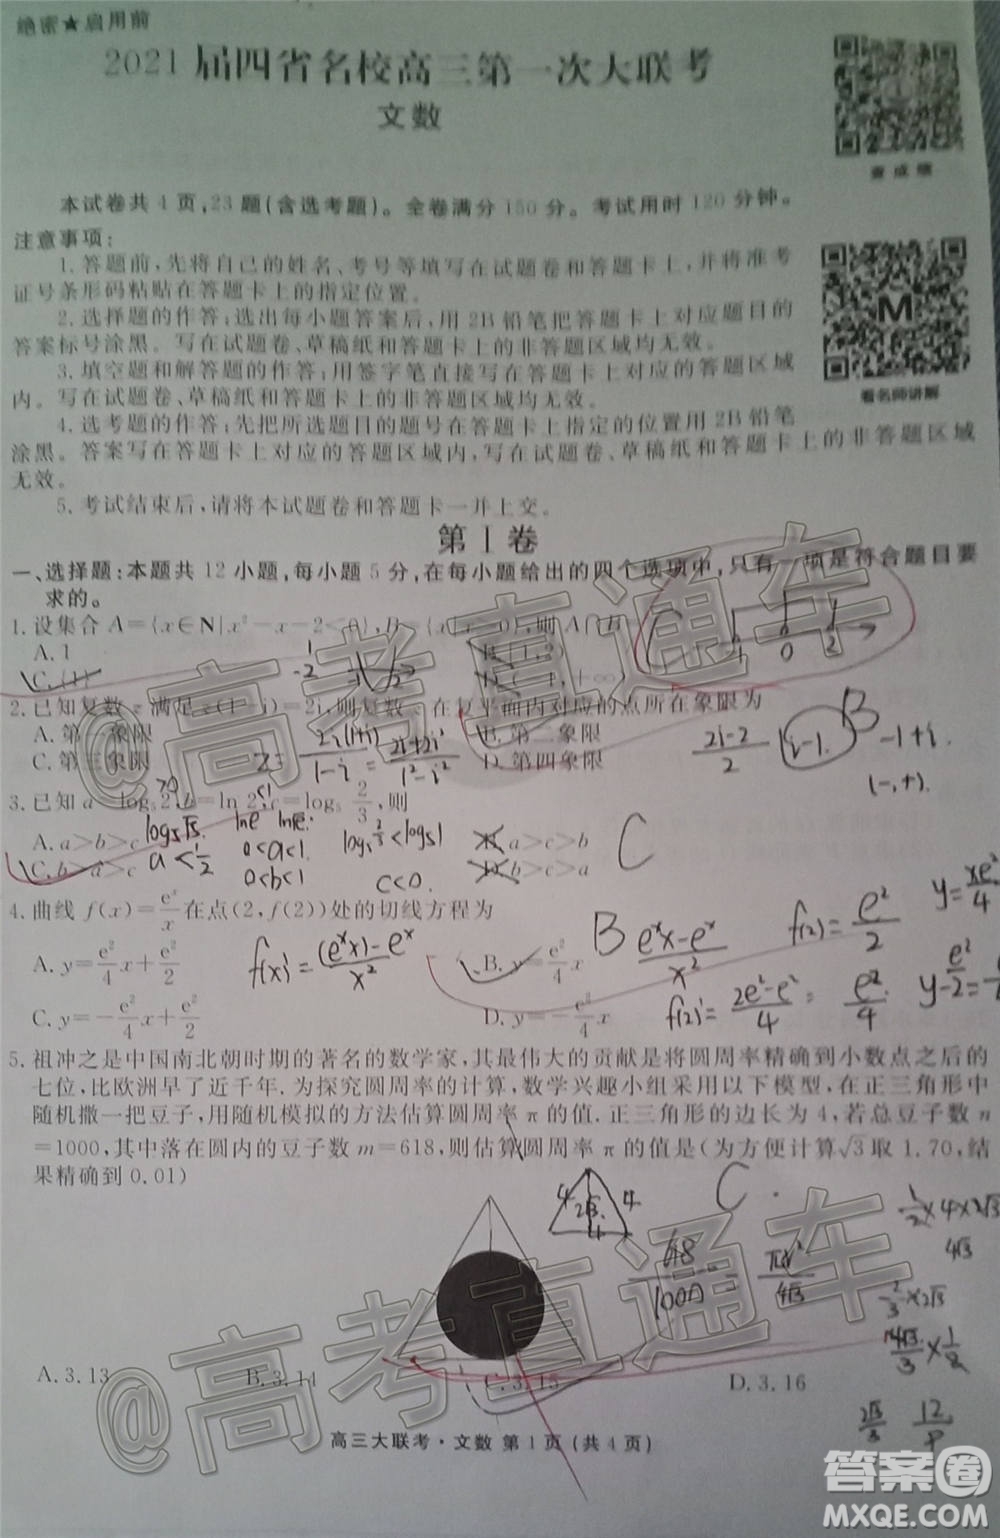 绝密★启用前
2021届四省名校高三第一次大联考
文数
查成绩
本试卷共4页,23题(含选考题)。全卷满分150分。考试用时120分钟。
注意事项:
1.答题前,先将自己的姓名、考号等填写在试题卷和答题卡上,并将准考
证号条形码粘贴在答题卡上的指定位置。
2.选择题的作答:选出每小题答案后,用2B铅笔把答题卡上对应题目的
答案标号涂黑。写在试题卷、草稿纸和答题卡上的非答题区域均无效。
M
3.填空题和解答题的作答:用签字笔直接写在答题卡上对应的答题区域
内。写在试题卷、草稿纸和答题卡上的非答题区域均无效。
看名师讲解
4.选考题的作答:先把所选题目的题号在答题卡上指定的位置用2B铅笔
涂黑。答案写在答题卡上对应的答题区域内,写在试题卷、草稿纸和答题卡上的非答题区域
无效。
5.考试结束后,请将本试题卷和答题卡一并上交。
第Ⅰ卷
一、选择题:本题共12小题,每小题5分,在每小题给出的四个选项中,只有一项是符合题目要
求的。
1.设集合A={x∈N|x²-x-2<0},B={x|x>0},则A∩B
A.1 B.(1,2)
C.{1} D.(-1,+∞)
2.已知复数z满足z(1-i)=2i,则复数z在复平面内对应的点所在象限为
A.第一象限 B.第二象限
C.第三象限 D.第四象限
2i(1+i)/1-i = 2i+2i²/1²-i²
2i-2/2
i-1. B -1+i.
(-,+).
3.已知a=log₅2,b=ln 2,c=log₅ 2/3,则
A.a>b>c B.a>c>b
C.b>a>c D.c>b>a
log₅√5. lne
a<1/2 0<a<1. 0<b<1
c<0. C
4.曲线f(x)=eˣ/x在点(2,f(2))处的切线方程为
A.y=e²/4x+e²/2 B.y=e²/4x
C.y=-e²/4x+e²/2 D.y=-e²/4x
f(x)'=(eˣx)-eˣ/x² B eˣx-eˣ/x² f(2)=e²/2 y=xe²/4
f(2)'=2e²-e²/4 = e²/4
5.祖冲之是中国南北朝时期的著名的数学家,其最伟大的贡献是将圆周率精确到小数点之后的
七位,比欧洲早了近千年.为探究圆周率的计算,数学兴趣小组采用以下模型,在正三角形中
随机撒一把豆子,用随机模拟的方法估算圆周率π的值.正三角形的边长为4,若总豆子数n
=1000,其中落在圆内的豆子数m=618,则估算圆周率π的值是(为方便计算√3取1.70,结
果精确到0.01)
4 2√3 4 C. 1/2×4×2√3
4√3
2/3×2√3
4√3/3×1/2
2√3/3
A.3.13 B.3.14 C.3.15 D.3.16
高三大联考·文数 第1页(共4页)
@高考直通车
@高考直通车
答案圈
MXQE.COM